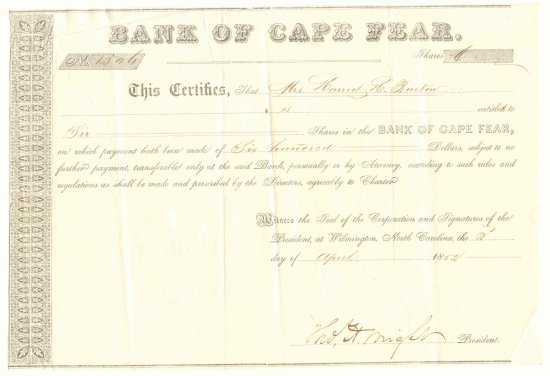 BANK OF CAPE FEAR.
No. 1506 Shares 6
This Certifies, That Mrs Harriet H. Burton
is entitled to
Six Shares in the BANK OF CAPE FEAR,
on which payment hath been made of Six hundred Dollars, subject to no
further payment, transferable only at the said Bank, personally or by Attorney, according to such rules and
regulations as shall be made and prescribed by the Directors, agreeably to Charter
Witness the Seal of the Corporation and Signatures of the
President, at Wilmington, North Carolina, the 2d
day of April 1852
Tho. H. Wright President.